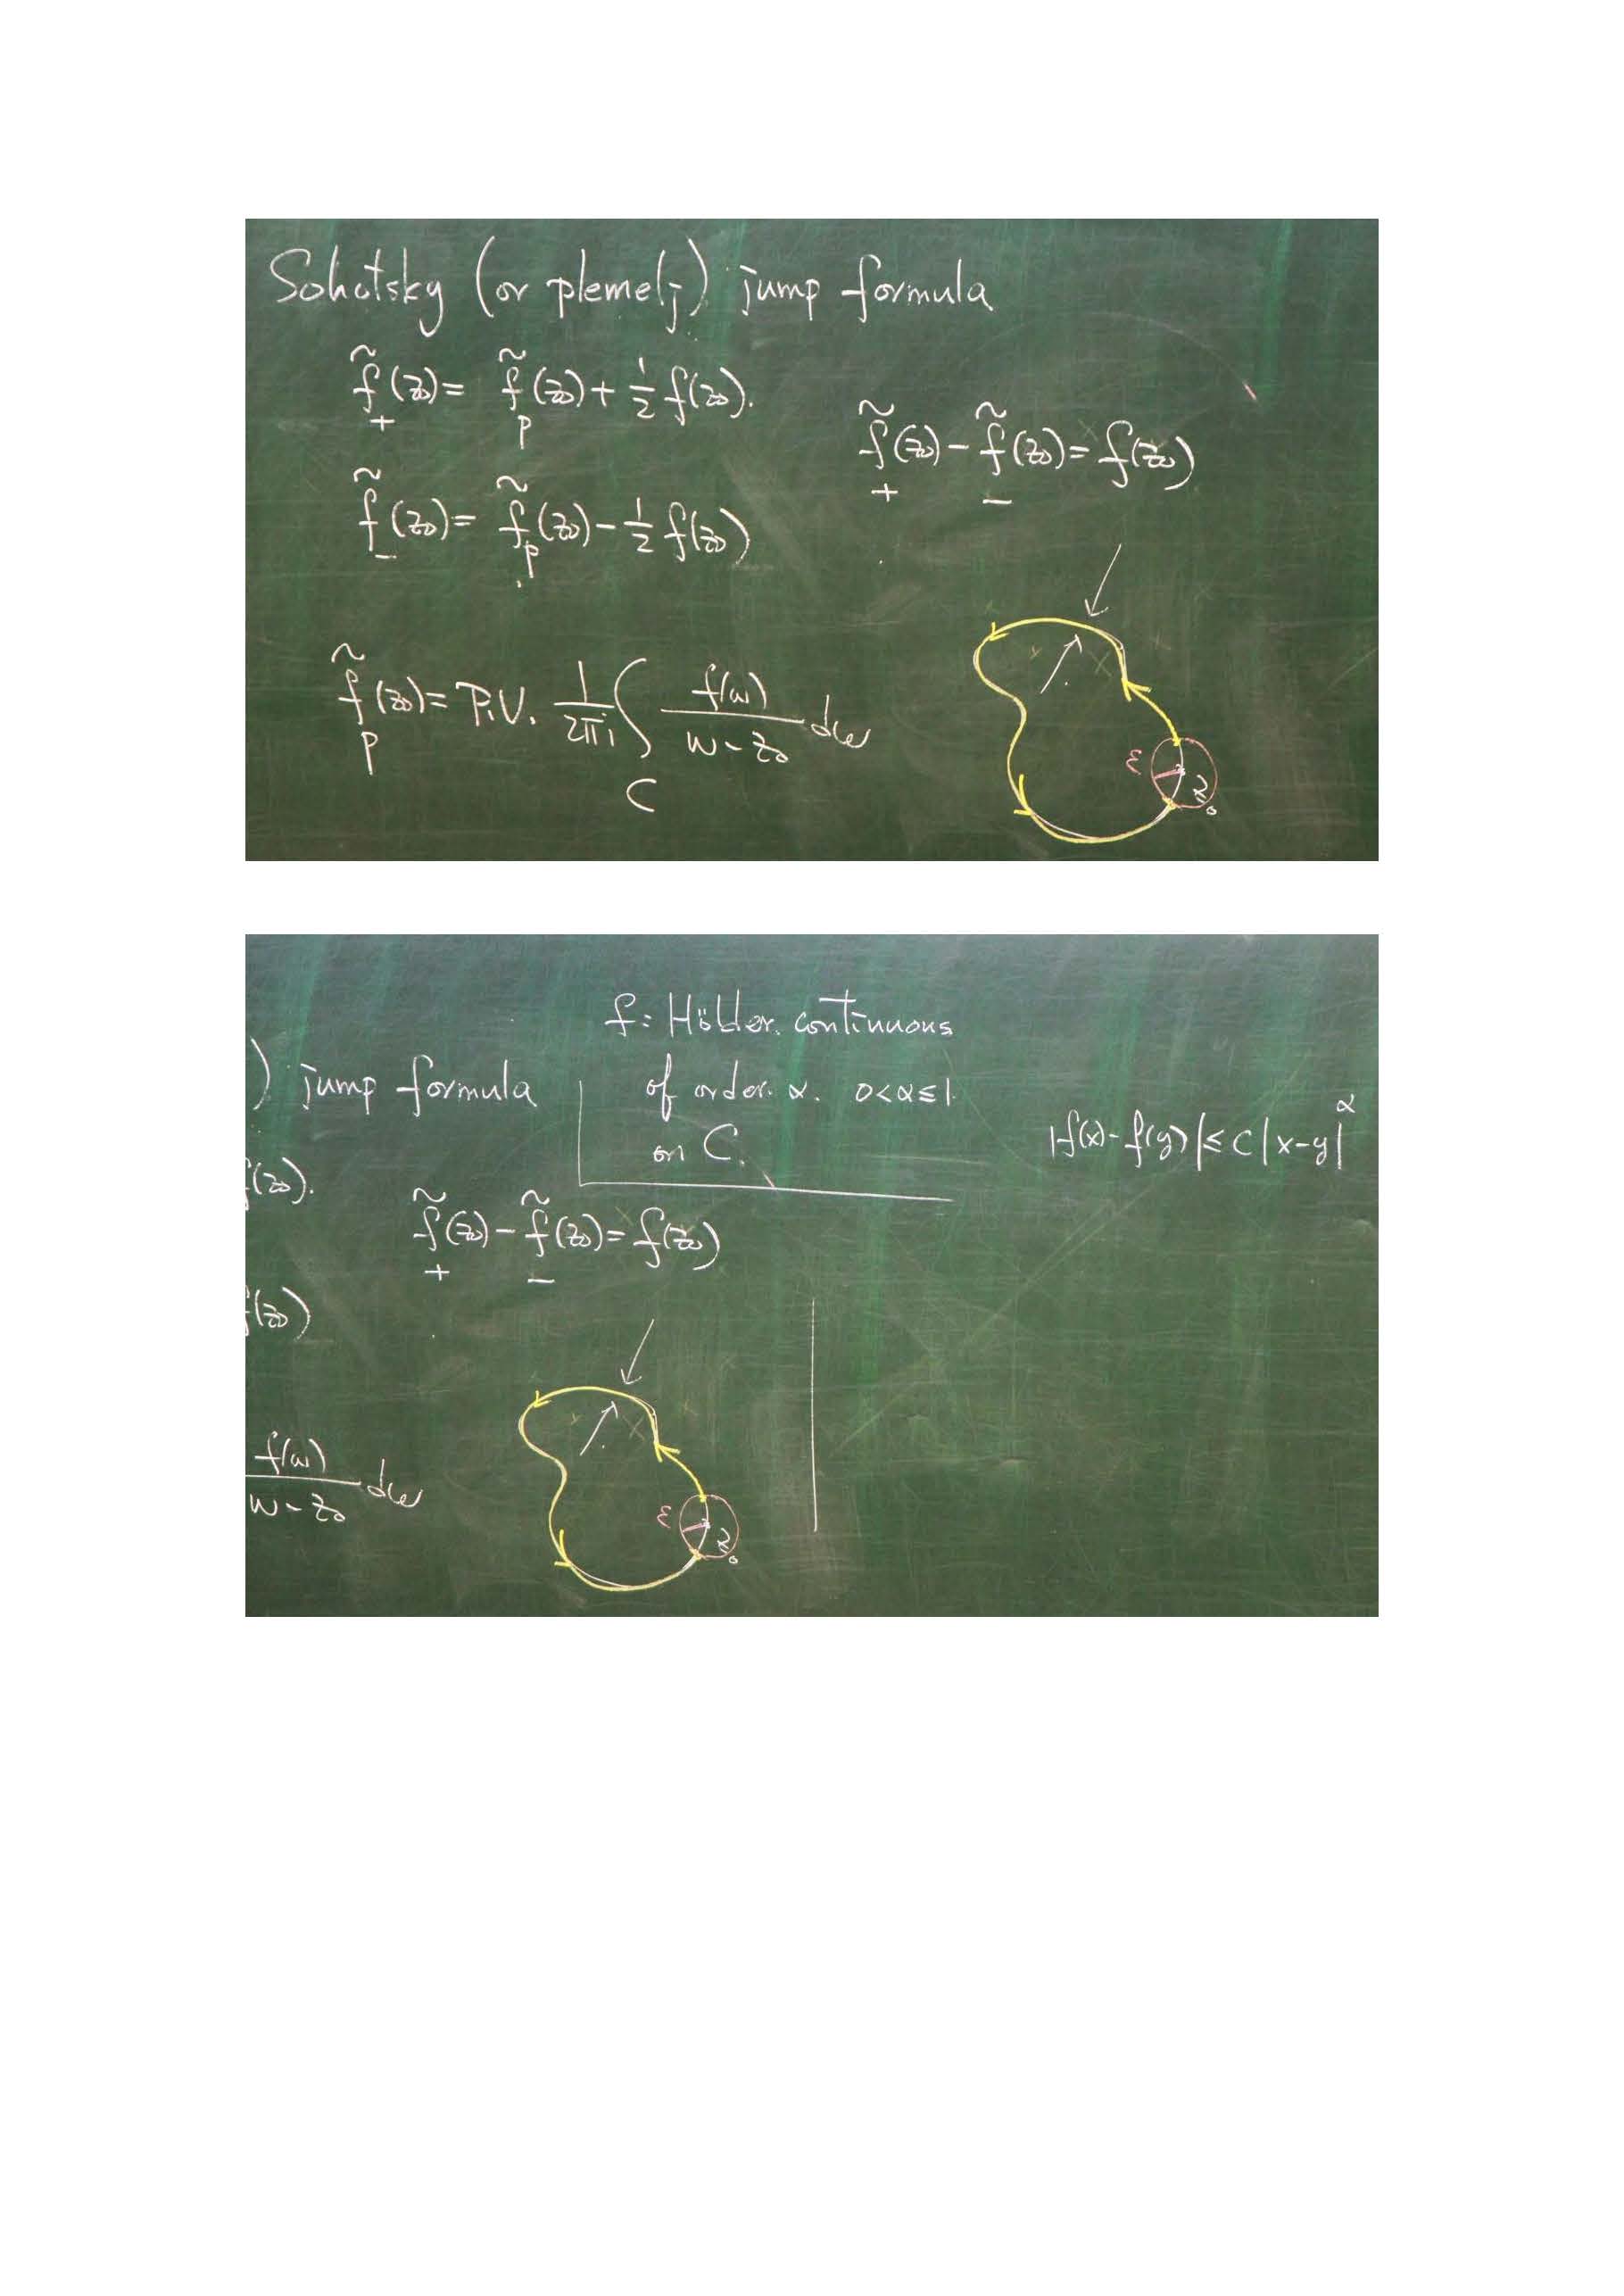 Sohotsky (or plemelj) jump formula
f̃₊(z₀) = f̃ₚ(z₀) + 1/2 f(z₀).
f̃₋(z₀) = f̃ₚ(z₀) - 1/2 f(z₀)
f̃₊(z₀) - f̃₋(z₀) = f(z₀)
f̃ₚ(z₀) = P.V. 1/2πi ∫_C f(w)/(w - z₀) dw
ε
z₀
f: Hölder continuous
) jump formula
of order α. 0<α≤1.
on C.
|f(x) - f(y)| ≤ C|x-y|^α
f(z₀).
f̃₊(z₀) - f̃₋(z₀) = f(z₀)
f(z₀)
f(w)/(w - z₀) dw
ε
z₀